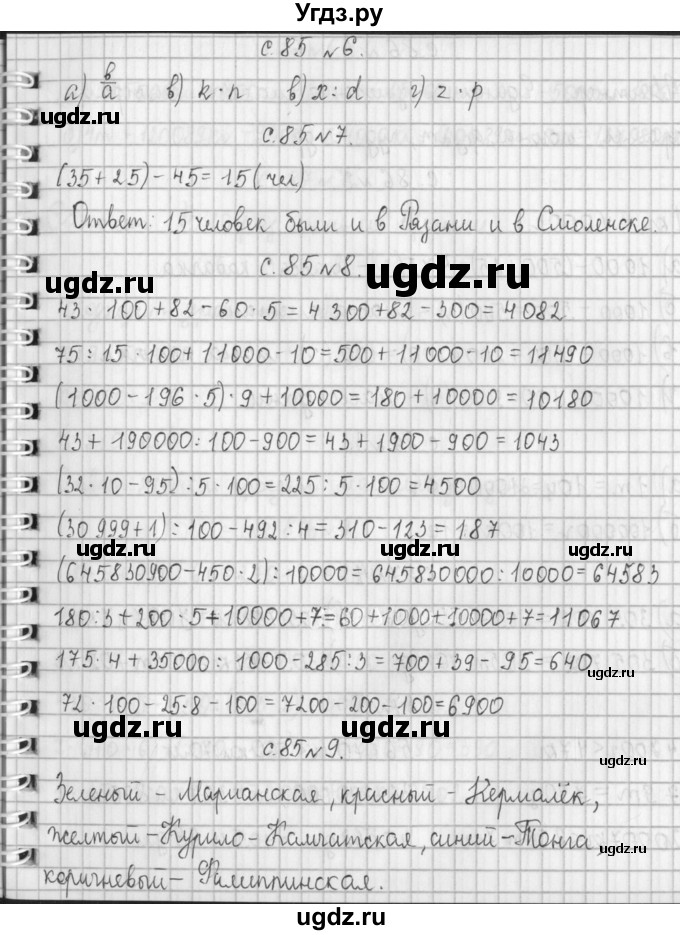 Угдз.ру
с.85 №6.
а) в/а в) k·n в) x:d г) z·p
ugdz.ru
ugdz.ru
с.85 №7.
(35+25)-45=15(чел)
Ответ: 15 человек были и в Рязани и в Смоленске.
с.85 №8.
ugdz.ru
ugdz.ru
43·100+82-60·5=4300+82-300=4082
75:15·100+11000-10=500+11000-10=11490
(1000-196·5)·9+10000=180+10000=10180
43+190000:100-900=43+1900-900=1043
(32·10-95):5·100=225:5·100=4500
(30999+1):100-492:4=310-123=187
ugdz.ru
ugdz.ru
ugdz.ru
(645830900-450·2):10000=645830000:10000=64583
180:3+200·5+10000+7=60+1000+10000+7=11067
175·4+35000:1000-285:3=700+39-95=640
ugdz.ru
72·100-25·8-100=7200-200-100=6900
ugdz.ru
ugdz.ru
с.85 №9.
ugdz.ru
Зеленый - Марианская, красный - Кермалёк,
желтый - Курило-Камчатская, синий - Тонга,
ugdz.ru
ugdz.ru
коричневый - Филиппинская.
ugdz.ru